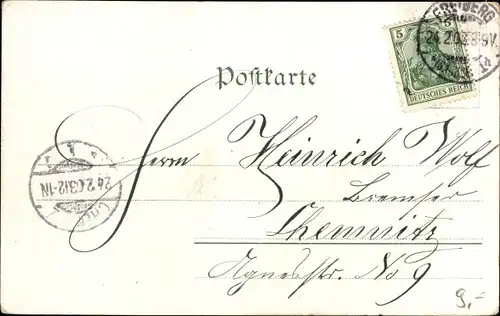 FREIBERG
24.2.03.8-9V.
5
DEUTSCHES REICH
Postkarte
Herrn Heinrich Wolf
Bremser
24.2.03.12-1N
Chemnitz
Agnesstr. No 9
9,-